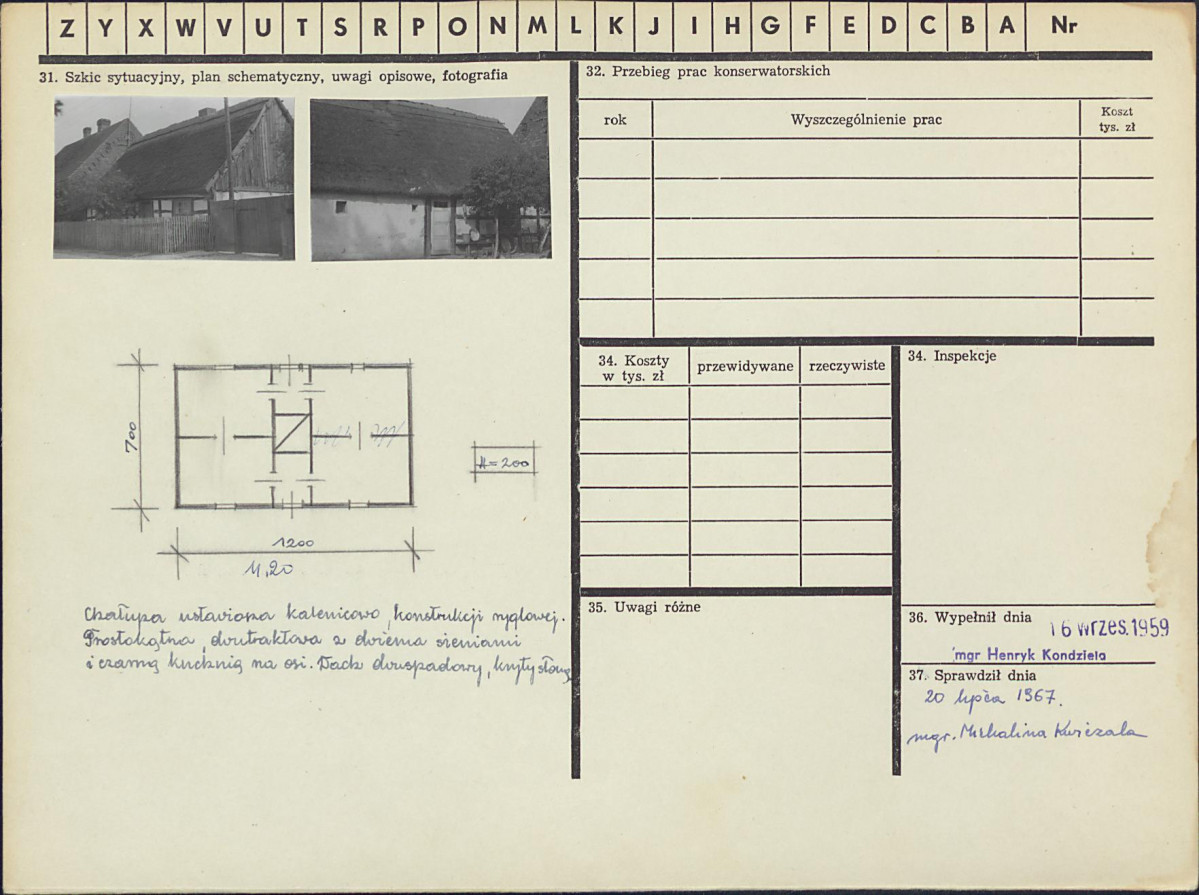 Z Y X W V U T S R P O N M L K J I H G F E D C B A Nr
31. Szkic sytuacyjny, plan schematyczny, uwagi opisowe, fotografia
700
H=200
1200
11,20
Chałupa ustawiona kalenicowo, konstrukcji ryglowej.
Prostokątna, dwutraktowa z dwiema sieniami
i czarną kuchnią na osi. Dach dwuspadowy, kryty słomą
32. Przebieg prac konserwatorskich
rok
Wyszczególnienie prac
Koszt
tys. zł
34. Koszty
w tys. zł
przewidywane
rzeczywiste
34. Inspekcje
35. Uwagi różne
36. Wypełnił dnia
16 wrzes. 1959
mgr Henryk Kondziela
37. Sprawdził dnia
20 lipca 1967.
mgr. Michalina